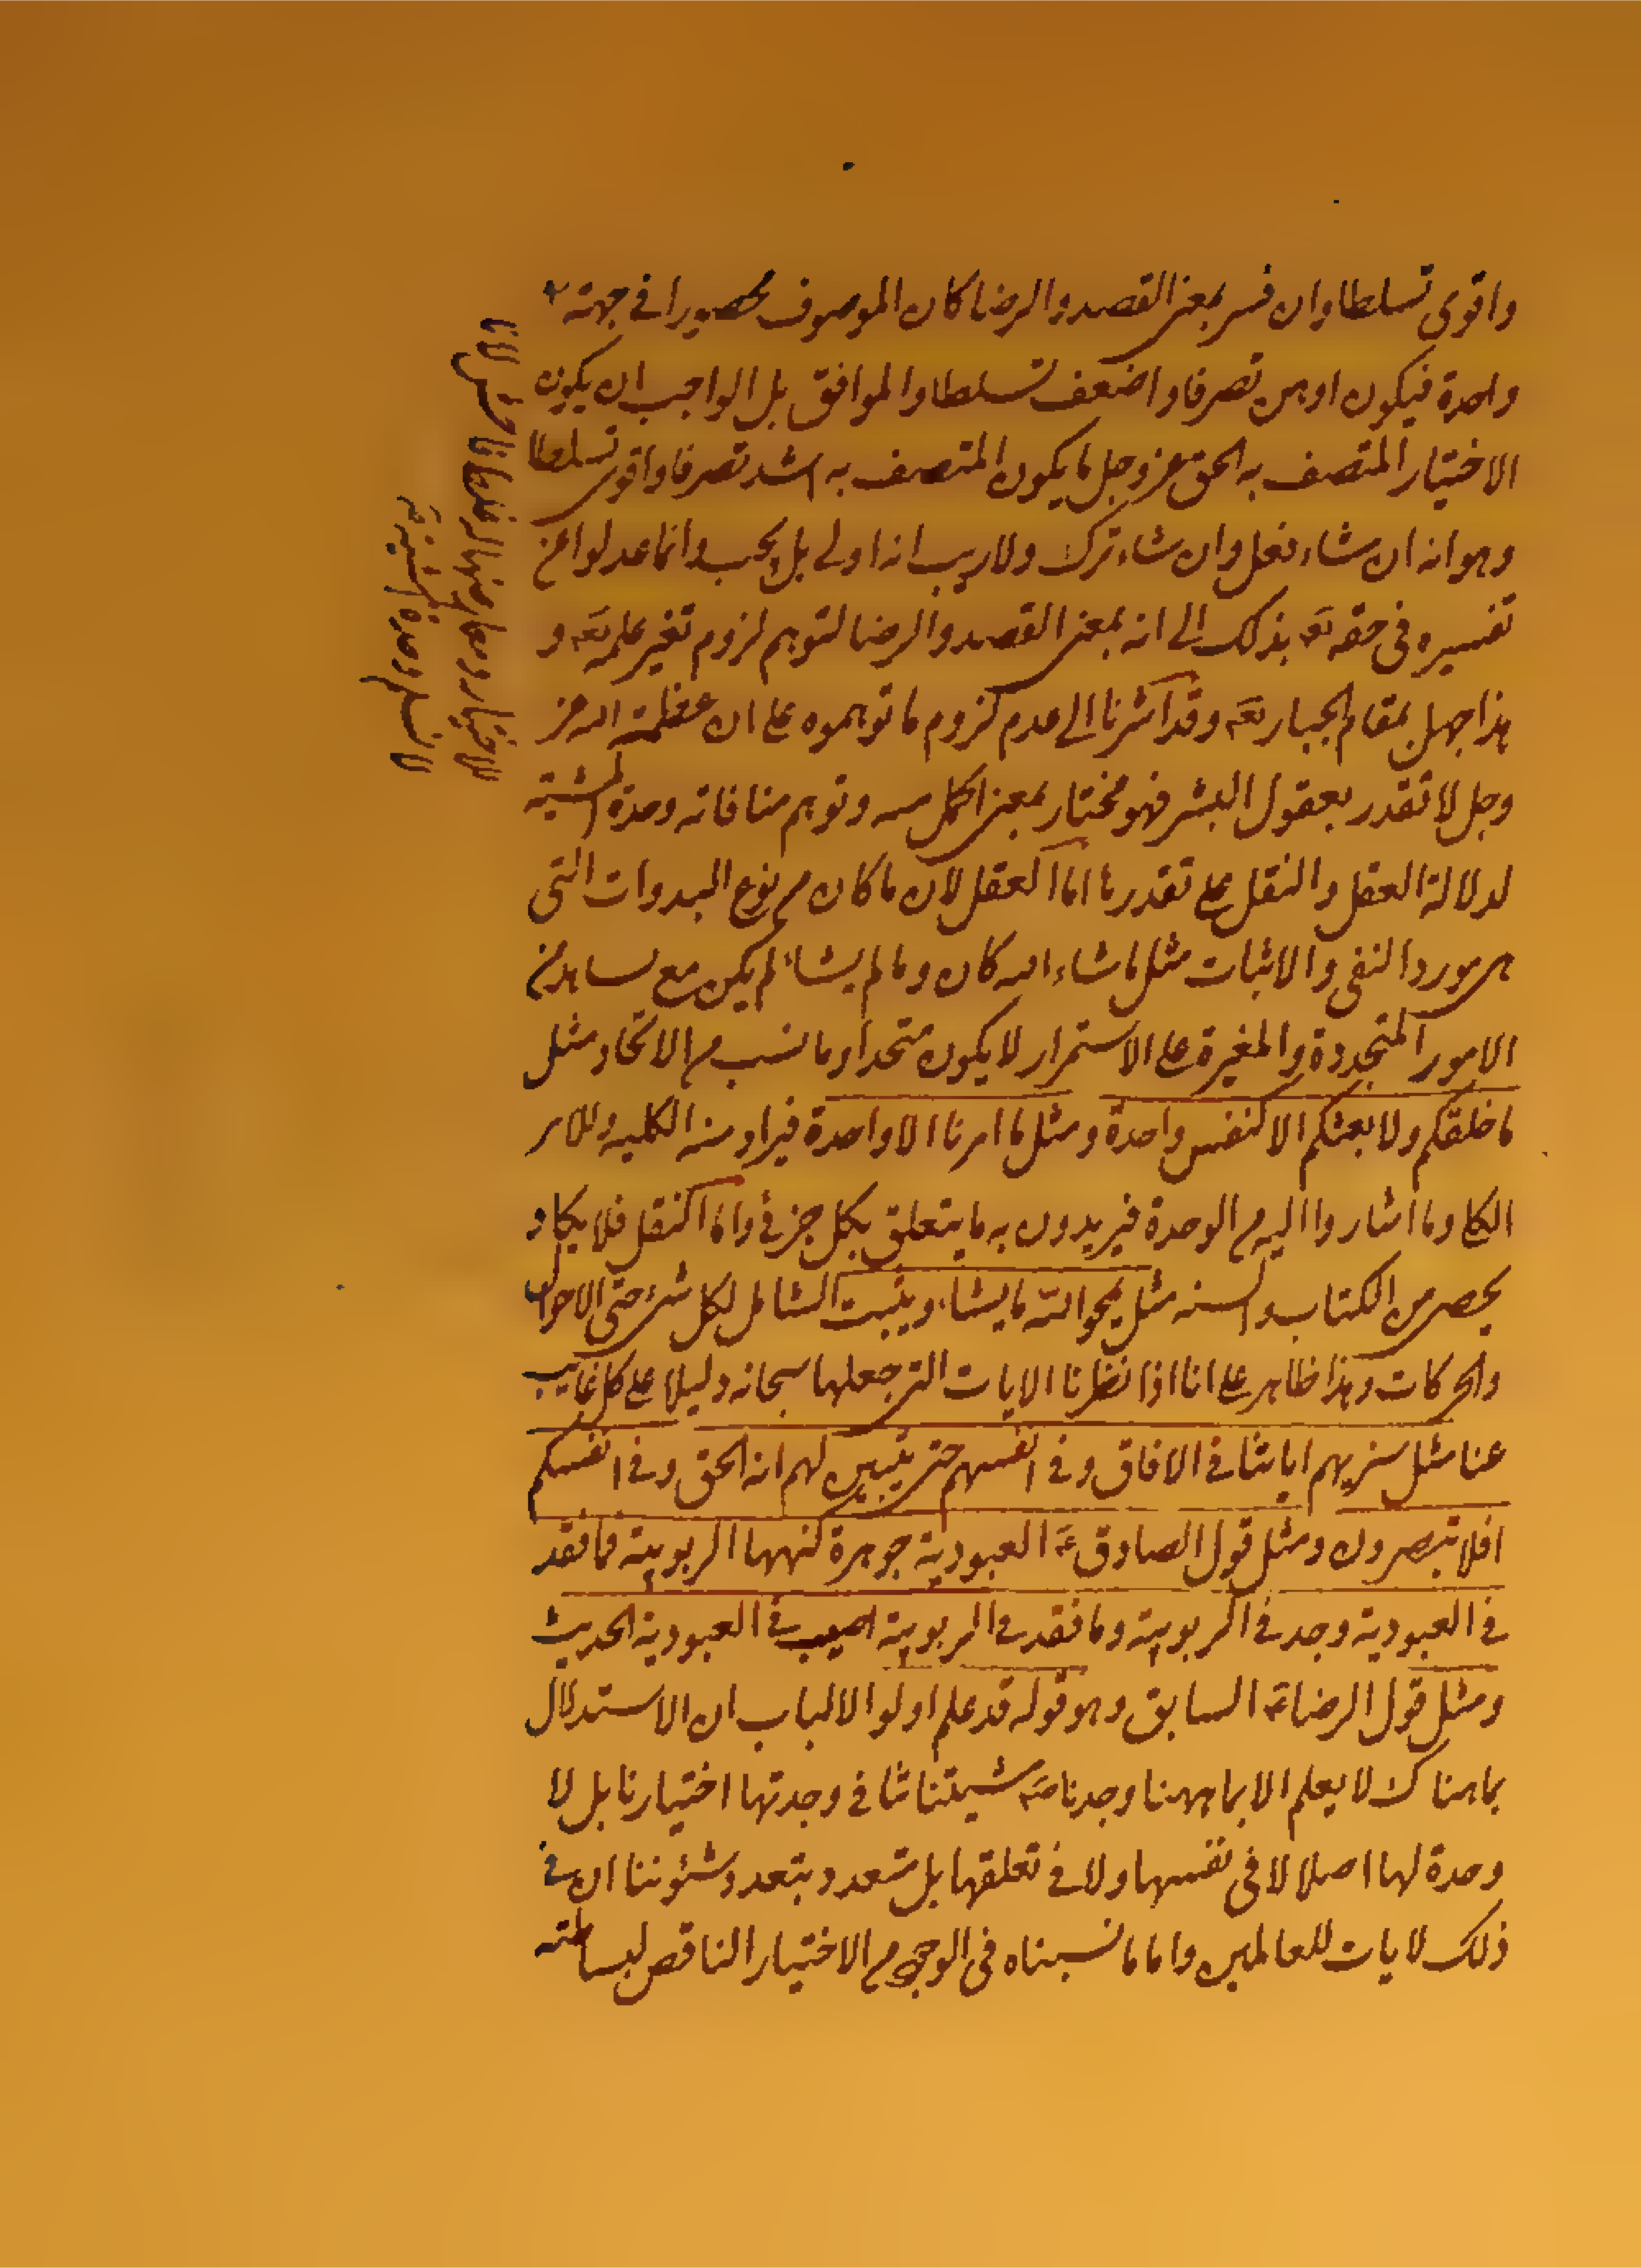 واقوى تسلطا وان فسر بمعنى القصد والرضا كان الموصوف محصورا في جهة
واحدة فيكون اوهن تصرفا واضعف تسلطا والموافق بل الواجب ان يكون
الاختيار المتصف به الحق عز وجل ما يكون المتصف به اشد تصرفا واقوى تسلطا
وهو انه ان شاء فعل وان شاء ترك ولا ريب انه اولى بل يجب وانما عدلوا عن
تفسيره في حقه تع بذلك الى انه بمعنى القصد والرضا لتوهم لزوم تغير علمه تع و
هذا جهل بمقام الجبار تع وقد اشرنا الى عدم لزوم ما توهموه على ان عظمة الله عز
وجل لا تقدر بعقول البشر فهو مختار بمعنى اكمل وتوهم منافاته وحدة المشية
لدلالة العقل والنقل على تعددها اما العقل لان ما كان من نوع البدوات التي
هي مورد النفي والاثبات مثل ما شاء الله كان وما لم يشاء لم يكن مع
الامور المتجددة والمغيرة على الاستمرار لا يكون متحدا وما نسب من الاتحاد مثل
ما خلقكم ولا بعثكم الا كنفس واحدة ومثل ما امرنا الا واحدة فيراد منه الكلية والامر
الكلي وما اشاروا اليه من الوحدة فيريدون به ما يتعلق بكل جزئي واما النقل فلا يكاد
يحصر من الكتاب والسنه مثل يمحو الله ما يشاء ويثبت الشامل لكل شئ حتى الاحوال
والحركات وهذا ظاهر على انا اذا نظرنا الايات التي جعلها سبحانه دليلا على كل غايب
عنا مثل سنريهم اياتنا في الافاق وفي انفسهم حتى يتبين لهم انه الحق وفي انفسكم
افلا تبصرون ومثل قول الصادق ع العبودية جوهرة كنهها الربوبية فما فقد
في العبودية وجد في الربوبية وما فقد في الربوبية اصيب في العبودية الحديث
ومثل قول الرضا ع السابق وهو قوله قد علم اولوا الالباب ان الاستدلال
بما هناك لا يعلم الا بما ههنا وجدنا مشيتنا في وحدتها اختيارنا بل لا
وحدة لها اصلا لا في نفسها ولا في تعلقها بل متعدد بتعدد شئوننا ان في
ذلك لايات للعالمين واما ما نسبناه في الوجه من الاختيار الناقص لبساطته